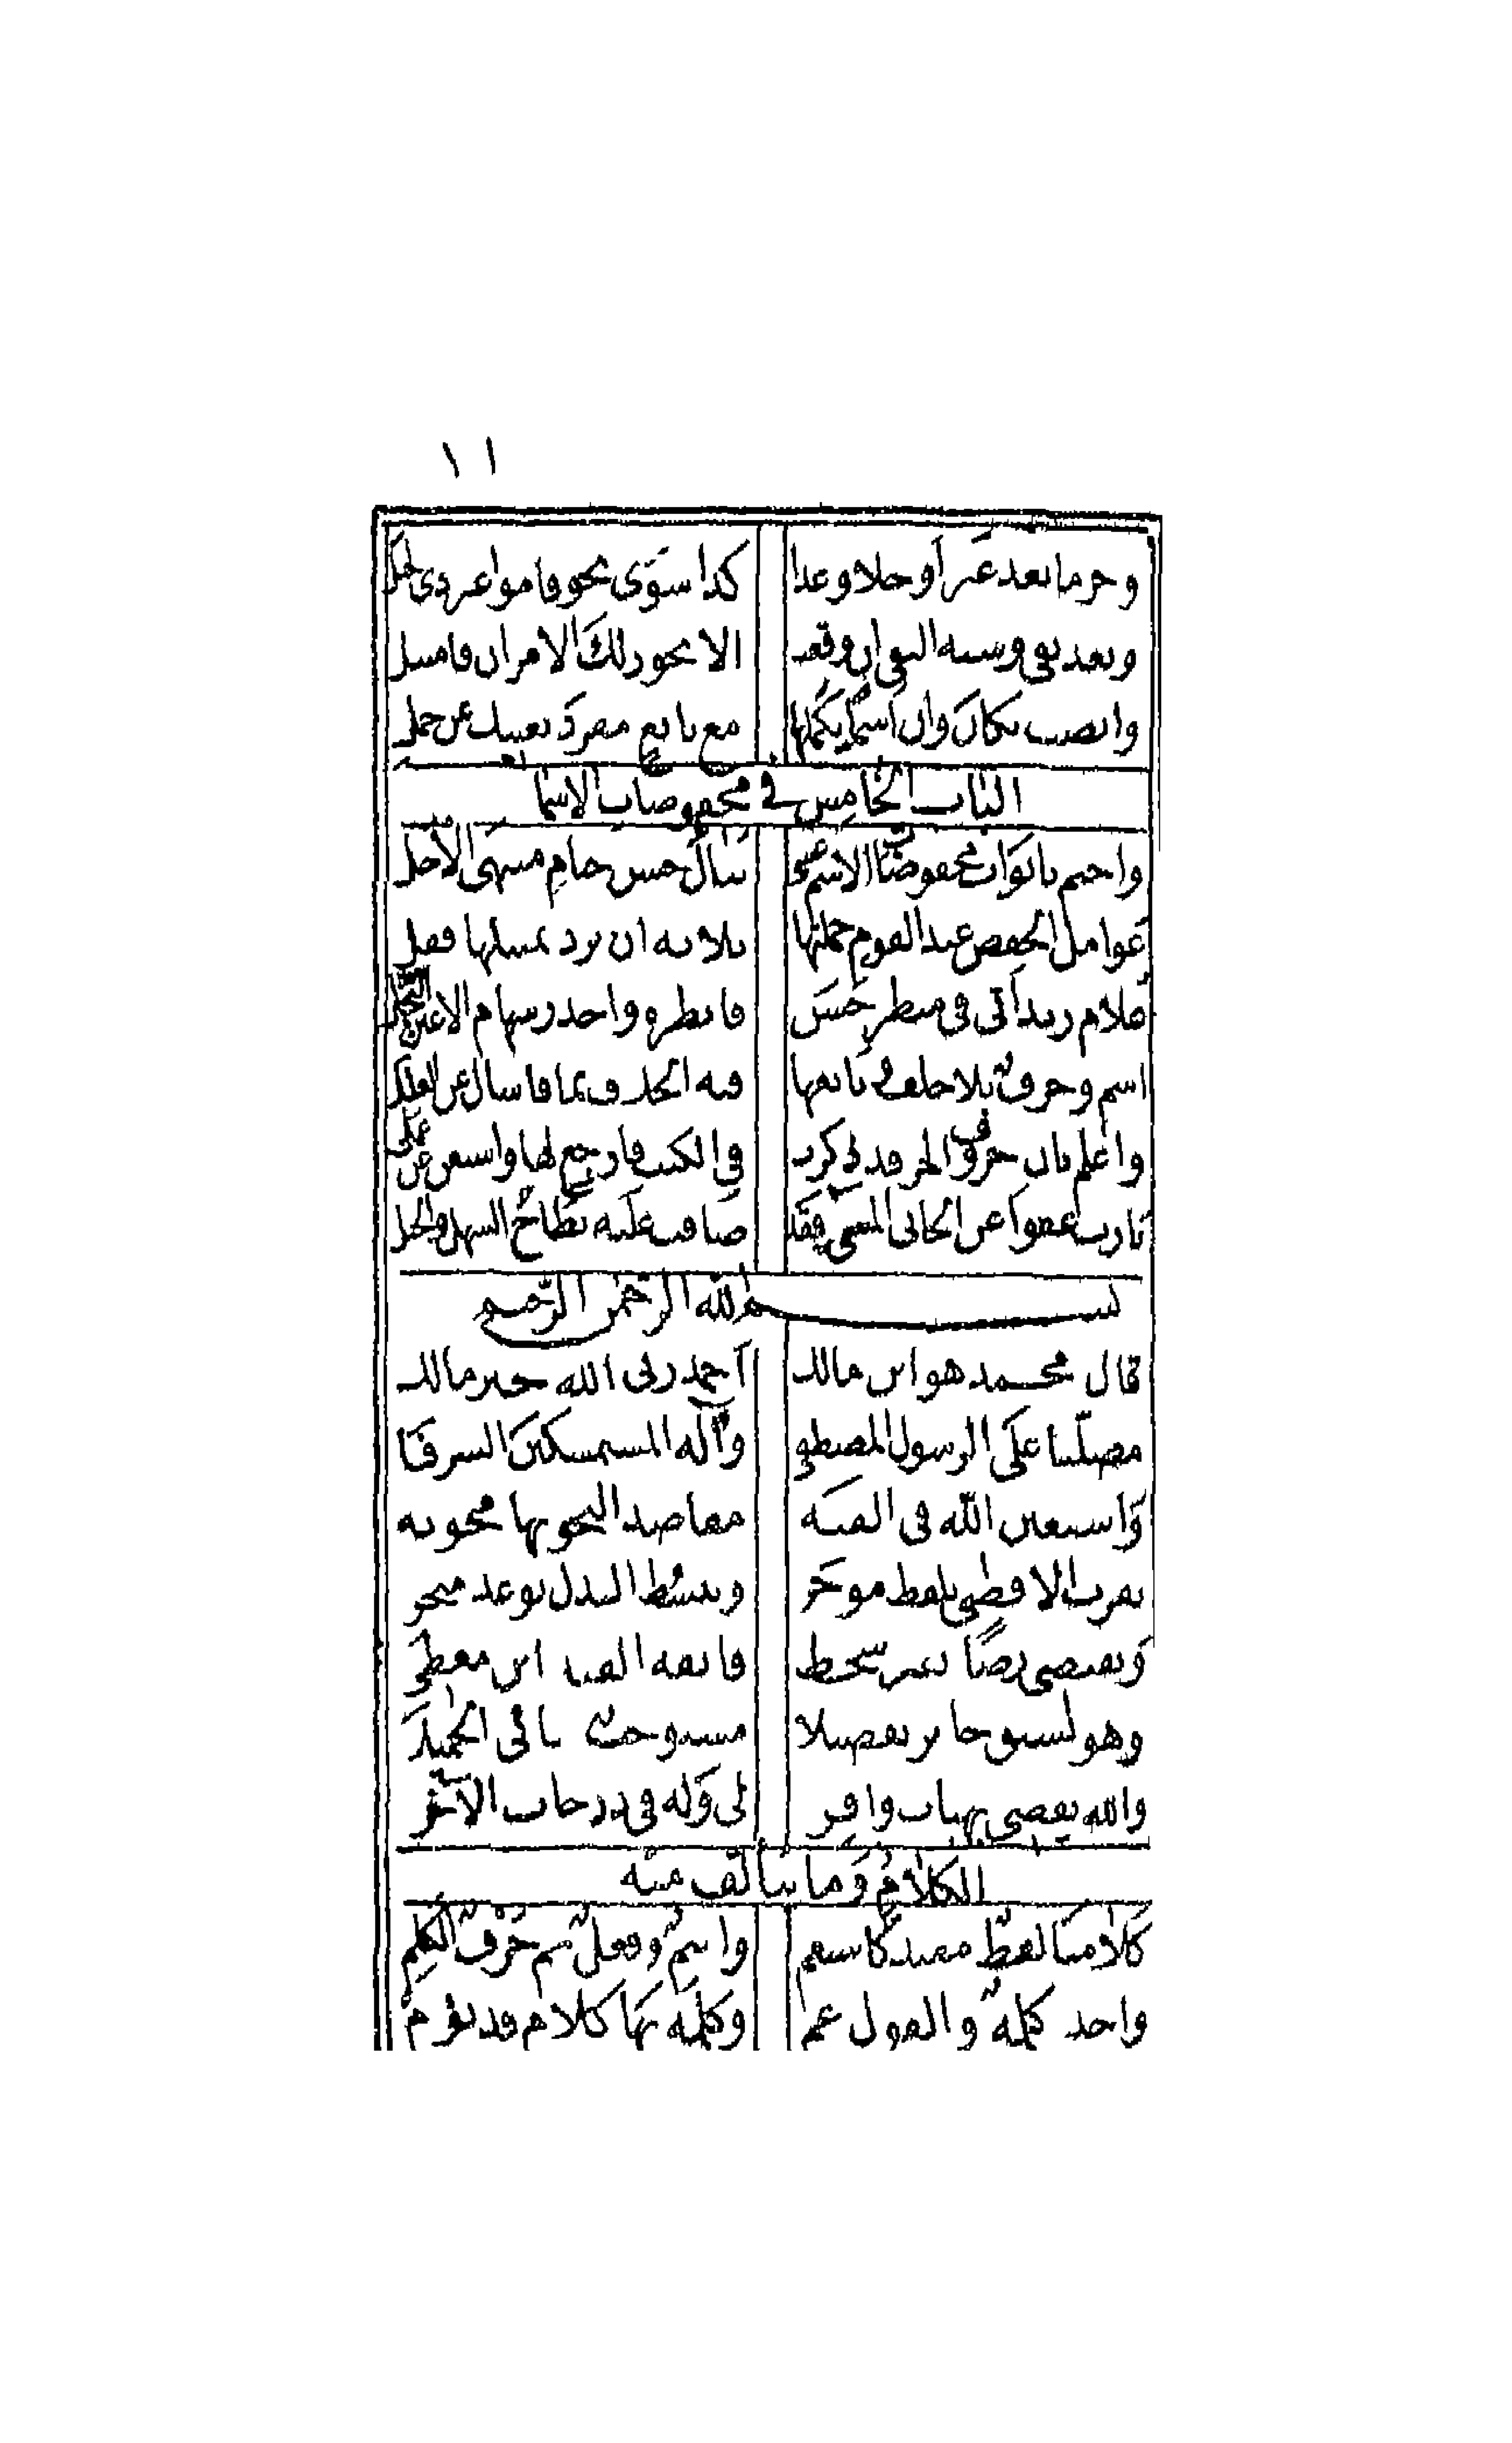 ١١
وجر ما بعد غير أو خلا وعدا كذا سوى نحو قاموا غير ذى
وبعد نفى وشبه النفى ان وقعت الا يجوز لك الامران فامتثل
وانصب بكان وان اسما يكملها مع تابع مفرد يغنيك عن جمل
الباب الخامس في مخفوضات الاسما
واختم بابواب مخفوضات الاسم عسى تنال حسن ختام منتهى الاجل
عوامل الخفض عند القوم جملتها ثلاثة ان ترد تمثيلها فقل
غلام زيد أتى فى منظر حسن فانظره واحذر سهام الاعين النجل
اسم وحرف بلا خلف وتابعها فيه الخلاف نما فاسأل عن العلل
واعلم بان حروف الجر قد ذكرت في الكتب فارجع لها واستغن عن عملى
يارب عفوا عن الجانى المسئ فقد ضاقت عليه بطاح السهل والجبل
بسم الله الرحمن الرحيم
قال محمد هو ابن مالك أحمد ربى الله خير مالك
مصليا على الرسول المصطفى وآله المستكملين الشرفا
وأستعين الله فى ألفيه مقاصد النحو بها محويه
تقرب الاقصى بلفظ موجز وتبسط البذل بوعد منجز
وتقتضى رضًا بغير سخط فائقة ألفية ابن معطى
وهو بسبق حائز تفضيلا مستوجب ثنائى الجميلا
والله يقضى بهبات وافره لى وله فى درجات الآخره
الكلام وما يتألف منه
كلامنا لفظ مفيد كاستقم واسم وفعل ثم حرف الكلم
واحده كلمة والقول عم وكلمة بها كلام قد يؤم